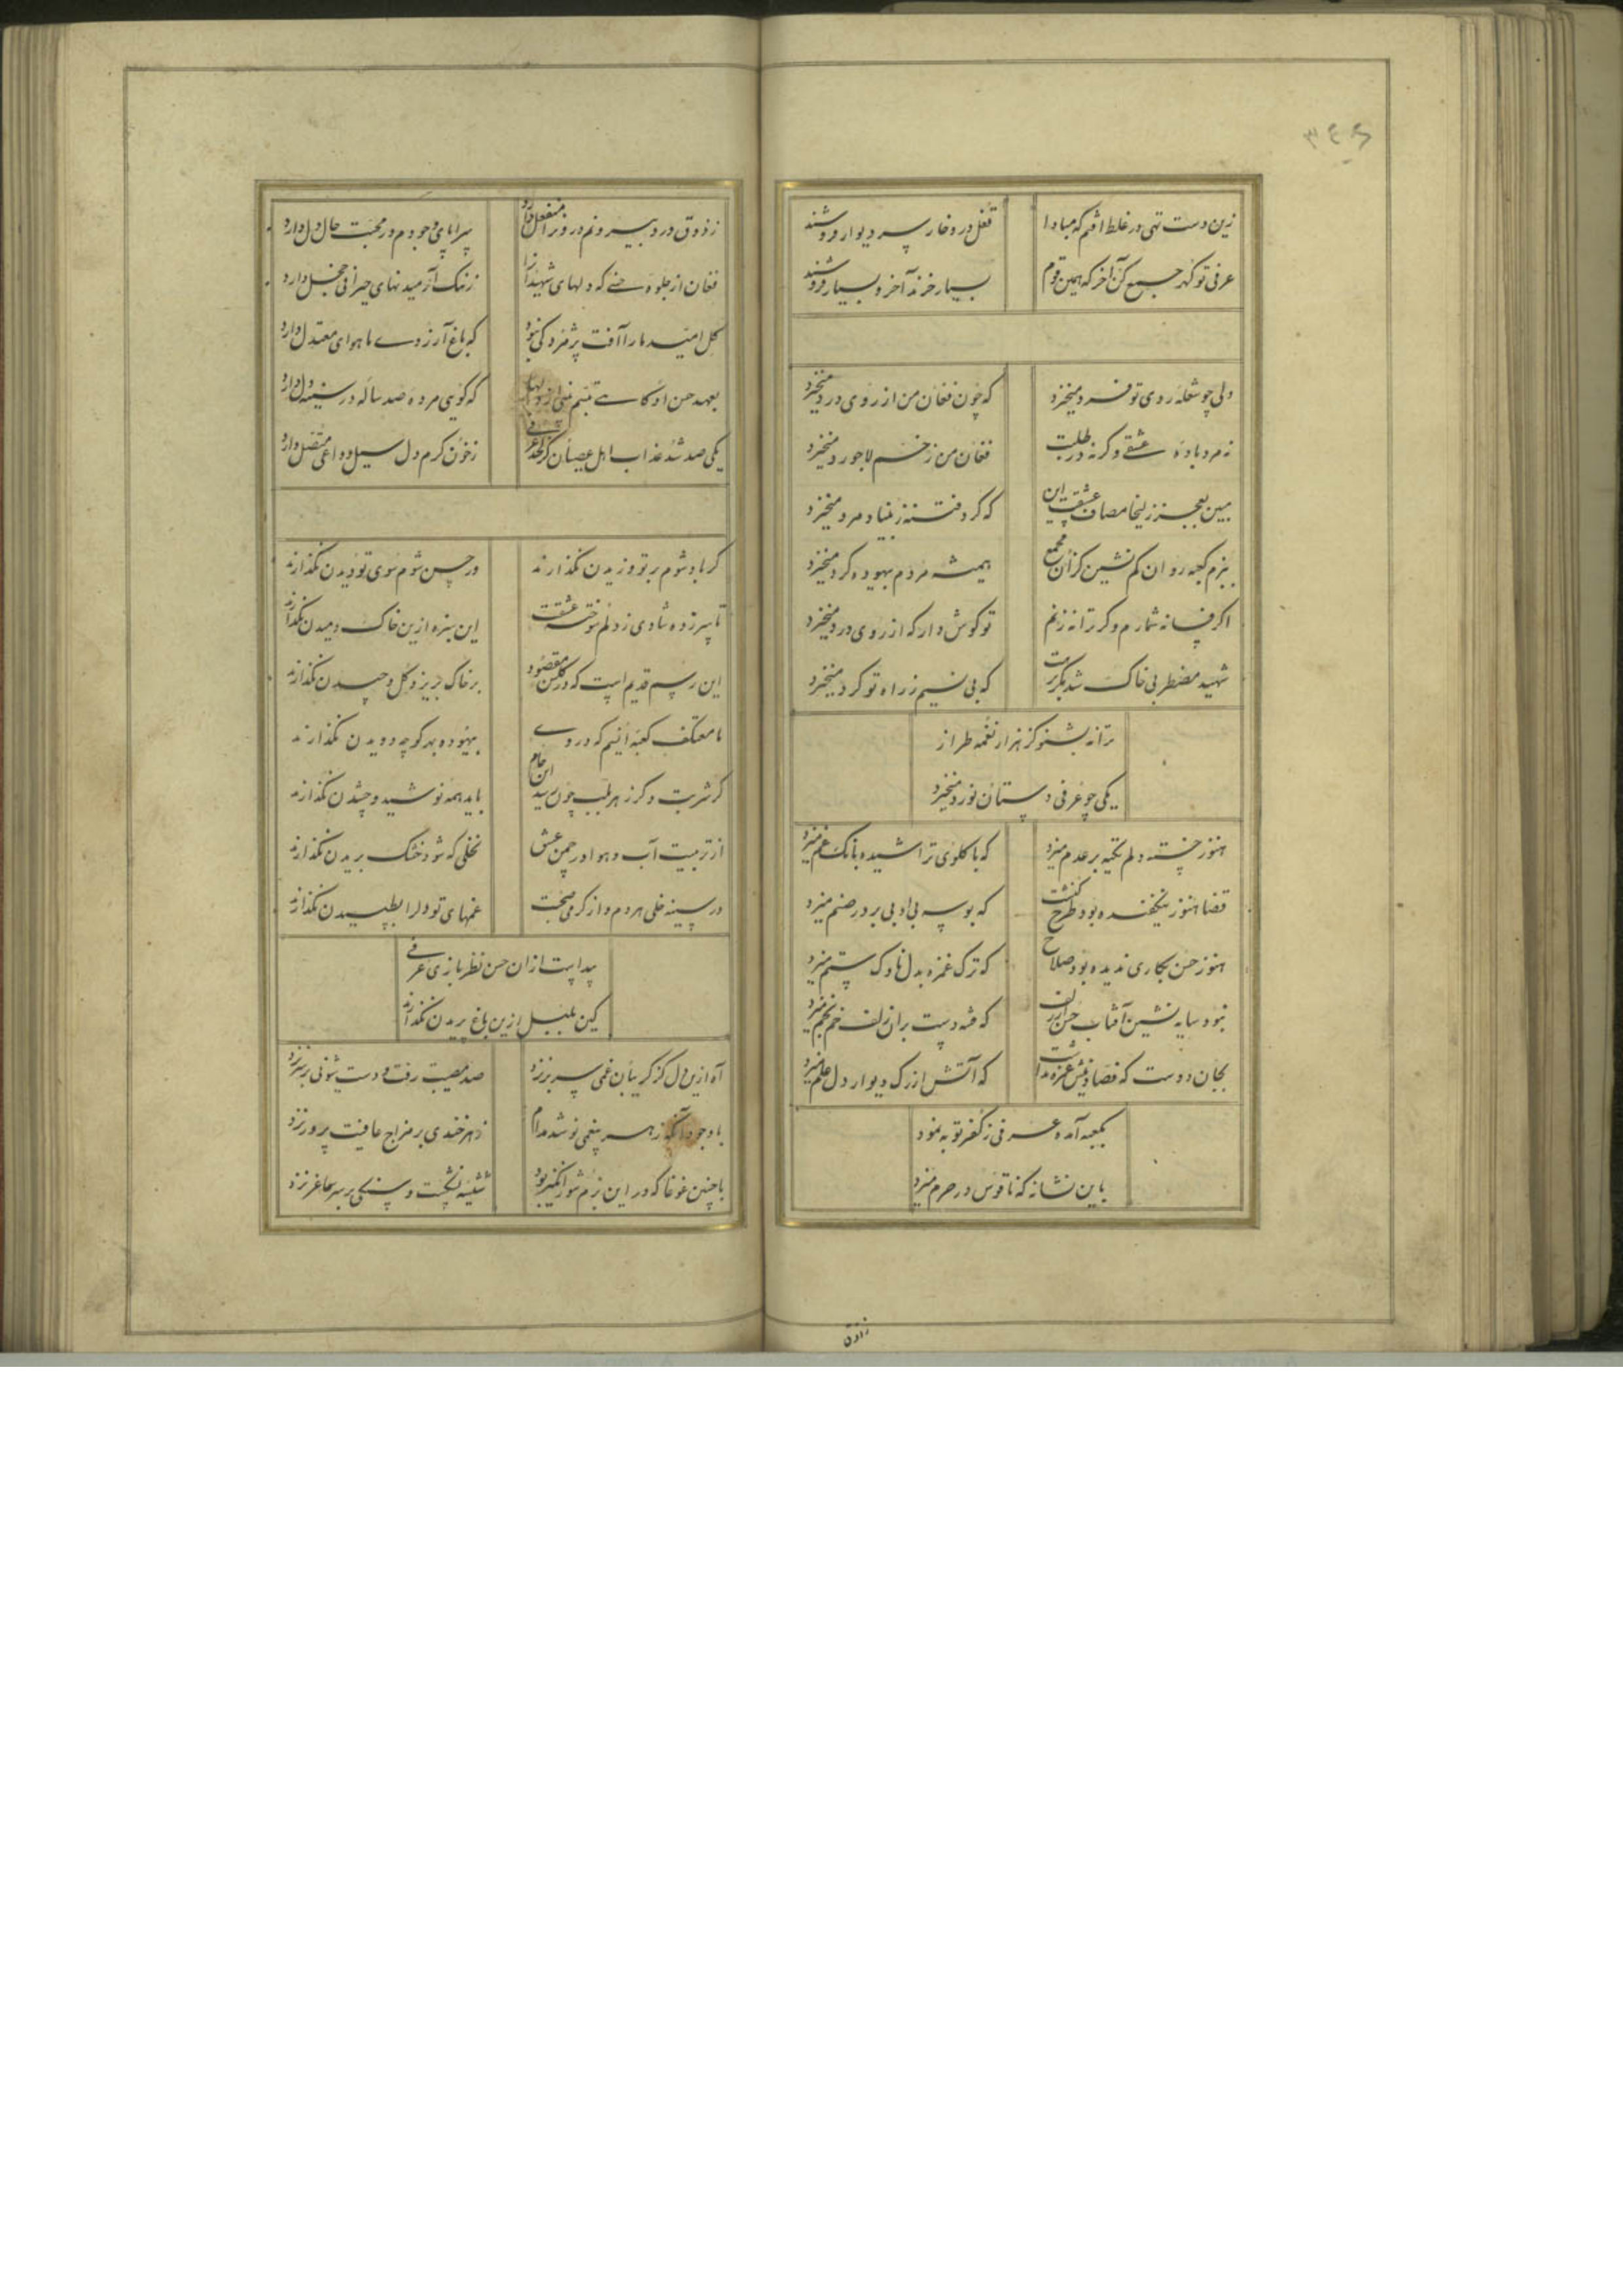 ۳۴۶
زین دست تهی در غلط افتم که مبادا
قفل در و خار سر دیوار فروشند
عرفی تو گهر جمع کن آخر که همین قوم
بسیار خرند آخر و بسیار فروشند
ولی چو شعله روی تو فرد میخیزد
که چون فغان من از روی درد میخیزد
نه مرد باده عشقی وگرنه در طلبت
فغان من ز خم لاجورد میخیزد
ببین بعجز زلیخا مصاف عشقست این
که گرد فتنه ز بنیاد مرد میخیزد
ببزم کعبه روان کم نشین کزان مجمع
همیشه مردم بیهوده گرد میخیزد
اگر فسانه شمارم وگر ترانه زنم
تو گوش دار که از روی درد میخیزد
شهید مضطربی خاک شد مگر
که بی نسیم ز راه تو گرد میخیزد
ترانه بشنو کز هزار نغمه طراز
یکی چو عرفی دستان نورد میخیزد
هنوز خسته دلم تکیه بر عدم میزد
که با گلوی تراشیده بانگ غم میزد
قضا هنوز نیفکنده بود طرح کنشت
که بوسه بی ادبی بر در صنم میزد
هنوز حسن بکاری ندیده بود صلاح
که ترک غمزه بدل ناوک ستم میزد
نبود سایه نشین آفتاب حسن از زلف
که فتنه دست بران زلف خم بخم میزد
بجان دوست که فصاد نیش غمزه نداشت
که آتش از رگ دیوار دل علم میزد
بکعبه آمده عرفی ز کفر توبه نمود
باین نشانه که ناقوس در حرم میزد
ز ذوق
ز ذوق درد بیرونم درونرا منفعل دارد
سراپای وجودم در محبت حال دل دارد
فغان از جلوه حسنی که دلهای شهیدانرا
ز ننگ آرمیدنهای حیرانی خجل دارد
گل امید ما را آفت پژمردگی نبود
که باغ آرزوی ما هوای معتدل دارد
بعهد حسن او گاهی تبسم دلها
که گویی مرده صد ساله در سینه دل دارد
یکی صد شد عذاب اهل عصیان عرفی
ز خون گرم دل سیل وداعی متصل دارد
گر باد شوم بر تو وزیدن نگذارند
ور حسن شوم سوی تو دیدن نگذارند
تا سر زده شادی ز دلم سوخته عشقت
این سبزه ازین خاک دمیدن نگذارند
این رسم قدیم است که در گلشن مقصود
بر خاک بریزد گل و چیدن نگذارند
ما معتکف کعبه انیم که در وی
بیهوده بهر کوچه دویدن نگذارند
گر شربت وگر زهر بلب چون رسد این جام
باید همه نوشید و چشیدن نگذارند
از تربیت آب و هوا در چمن عشق
نخلی که شود خشک بریدن نگذارند
در سینه خلی هر دم و از گرمی صحبت
غمهای تو دل را بطپیدن نگذارند
پیداست ازان حسن نظر بازی عرفی
کین بلبل ازین باغ پریدن نگذارند
آه ازین دل کز گریبان غمی سر برنزد
صد مصیبت رفت و دست شیونی بر سر نزد
با وجود آنکه زهر بیغمی نوشد مدام
زهرخندی بر مزاج عافیت پرور نزد
با چنین غوغا که در این بزم شورانگیز بود
شیشه نشکست و سنگی بر سر ساغر نزد